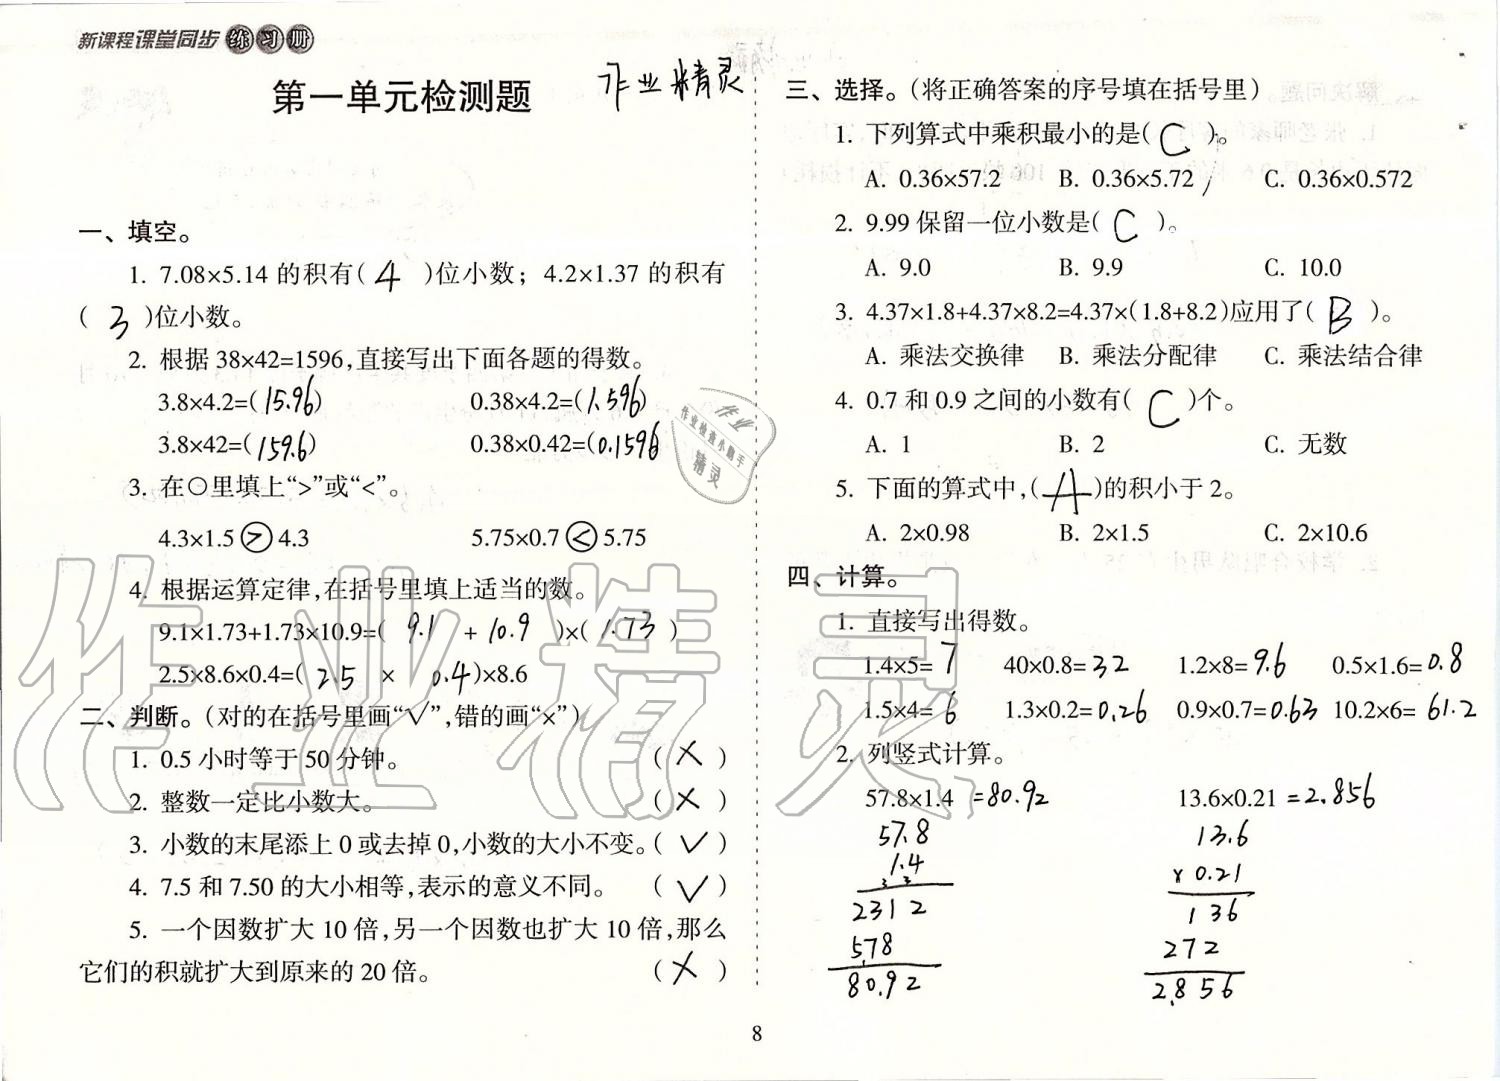 新课程课堂同步练习册
第一单元检测题
作业精灵
一、填空。
1. 7.08×5.14 的积有( 4 )位小数；4.2×1.37 的积有
( 3 )位小数。
2. 根据 38×42=1596,直接写出下面各题的得数。
3.8×4.2=(15.96) 0.38×4.2=(1.596)
3.8×42=(159.6) 0.38×0.42=(0.1596
3. 在○里填上“>”或“<”。
4.3×1.5 > 4.3 5.75×0.7 < 5.75
4. 根据运算定律,在括号里填上适当的数。
9.1×1.73+1.73×10.9=( 9.1 + 10.9 )×( 1.73 )
2.5×8.6×0.4=( 2.5 × 0.4 )×8.6
二、判断。(对的在括号里画“√”,错的画“×”)
1. 0.5 小时等于 50 分钟。 ( × )
2. 整数一定比小数大。 ( × )
3. 小数的末尾添上 0 或去掉 0,小数的大小不变。( √ )
4. 7.5 和 7.50 的大小相等,表示的意义不同。 ( √ )
5. 一个因数扩大 10 倍,另一个因数也扩大 10 倍,那么
它们的积就扩大到原来的 20 倍。 ( × )
三、选择。(将正确答案的序号填在括号里)
1. 下列算式中乘积最小的是( C )。
A. 0.36×57.2 B. 0.36×5.72 C. 0.36×0.572
2. 9.99 保留一位小数是( C )。
A. 9.0 B. 9.9 C. 10.0
3. 4.37×1.8+4.37×8.2=4.37×(1.8+8.2)应用了( B )。
A. 乘法交换律 B. 乘法分配律 C. 乘法结合律
4. 0.7 和 0.9 之间的小数有( C )个。
A. 1 B. 2 C. 无数
5. 下面的算式中,( A )的积小于 2。
A. 2×0.98 B. 2×1.5 C. 2×10.6
四、计算。
1. 直接写出得数。
1.4×5= 7 40×0.8= 32 1.2×8= 9.6 0.5×1.6= 0.8
1.5×4= 6 1.3×0.2= 0.26 0.9×0.7= 0.63 10.2×6= 61.2
2. 列竖式计算。
57.8×1.4 =80.92 13.6×0.21 =2.856
57.8 13.6
1.4 × 0.21
2312 136
578 272
80.92 2.856
作业
作业检查小助手
精灵
作业精灵
8